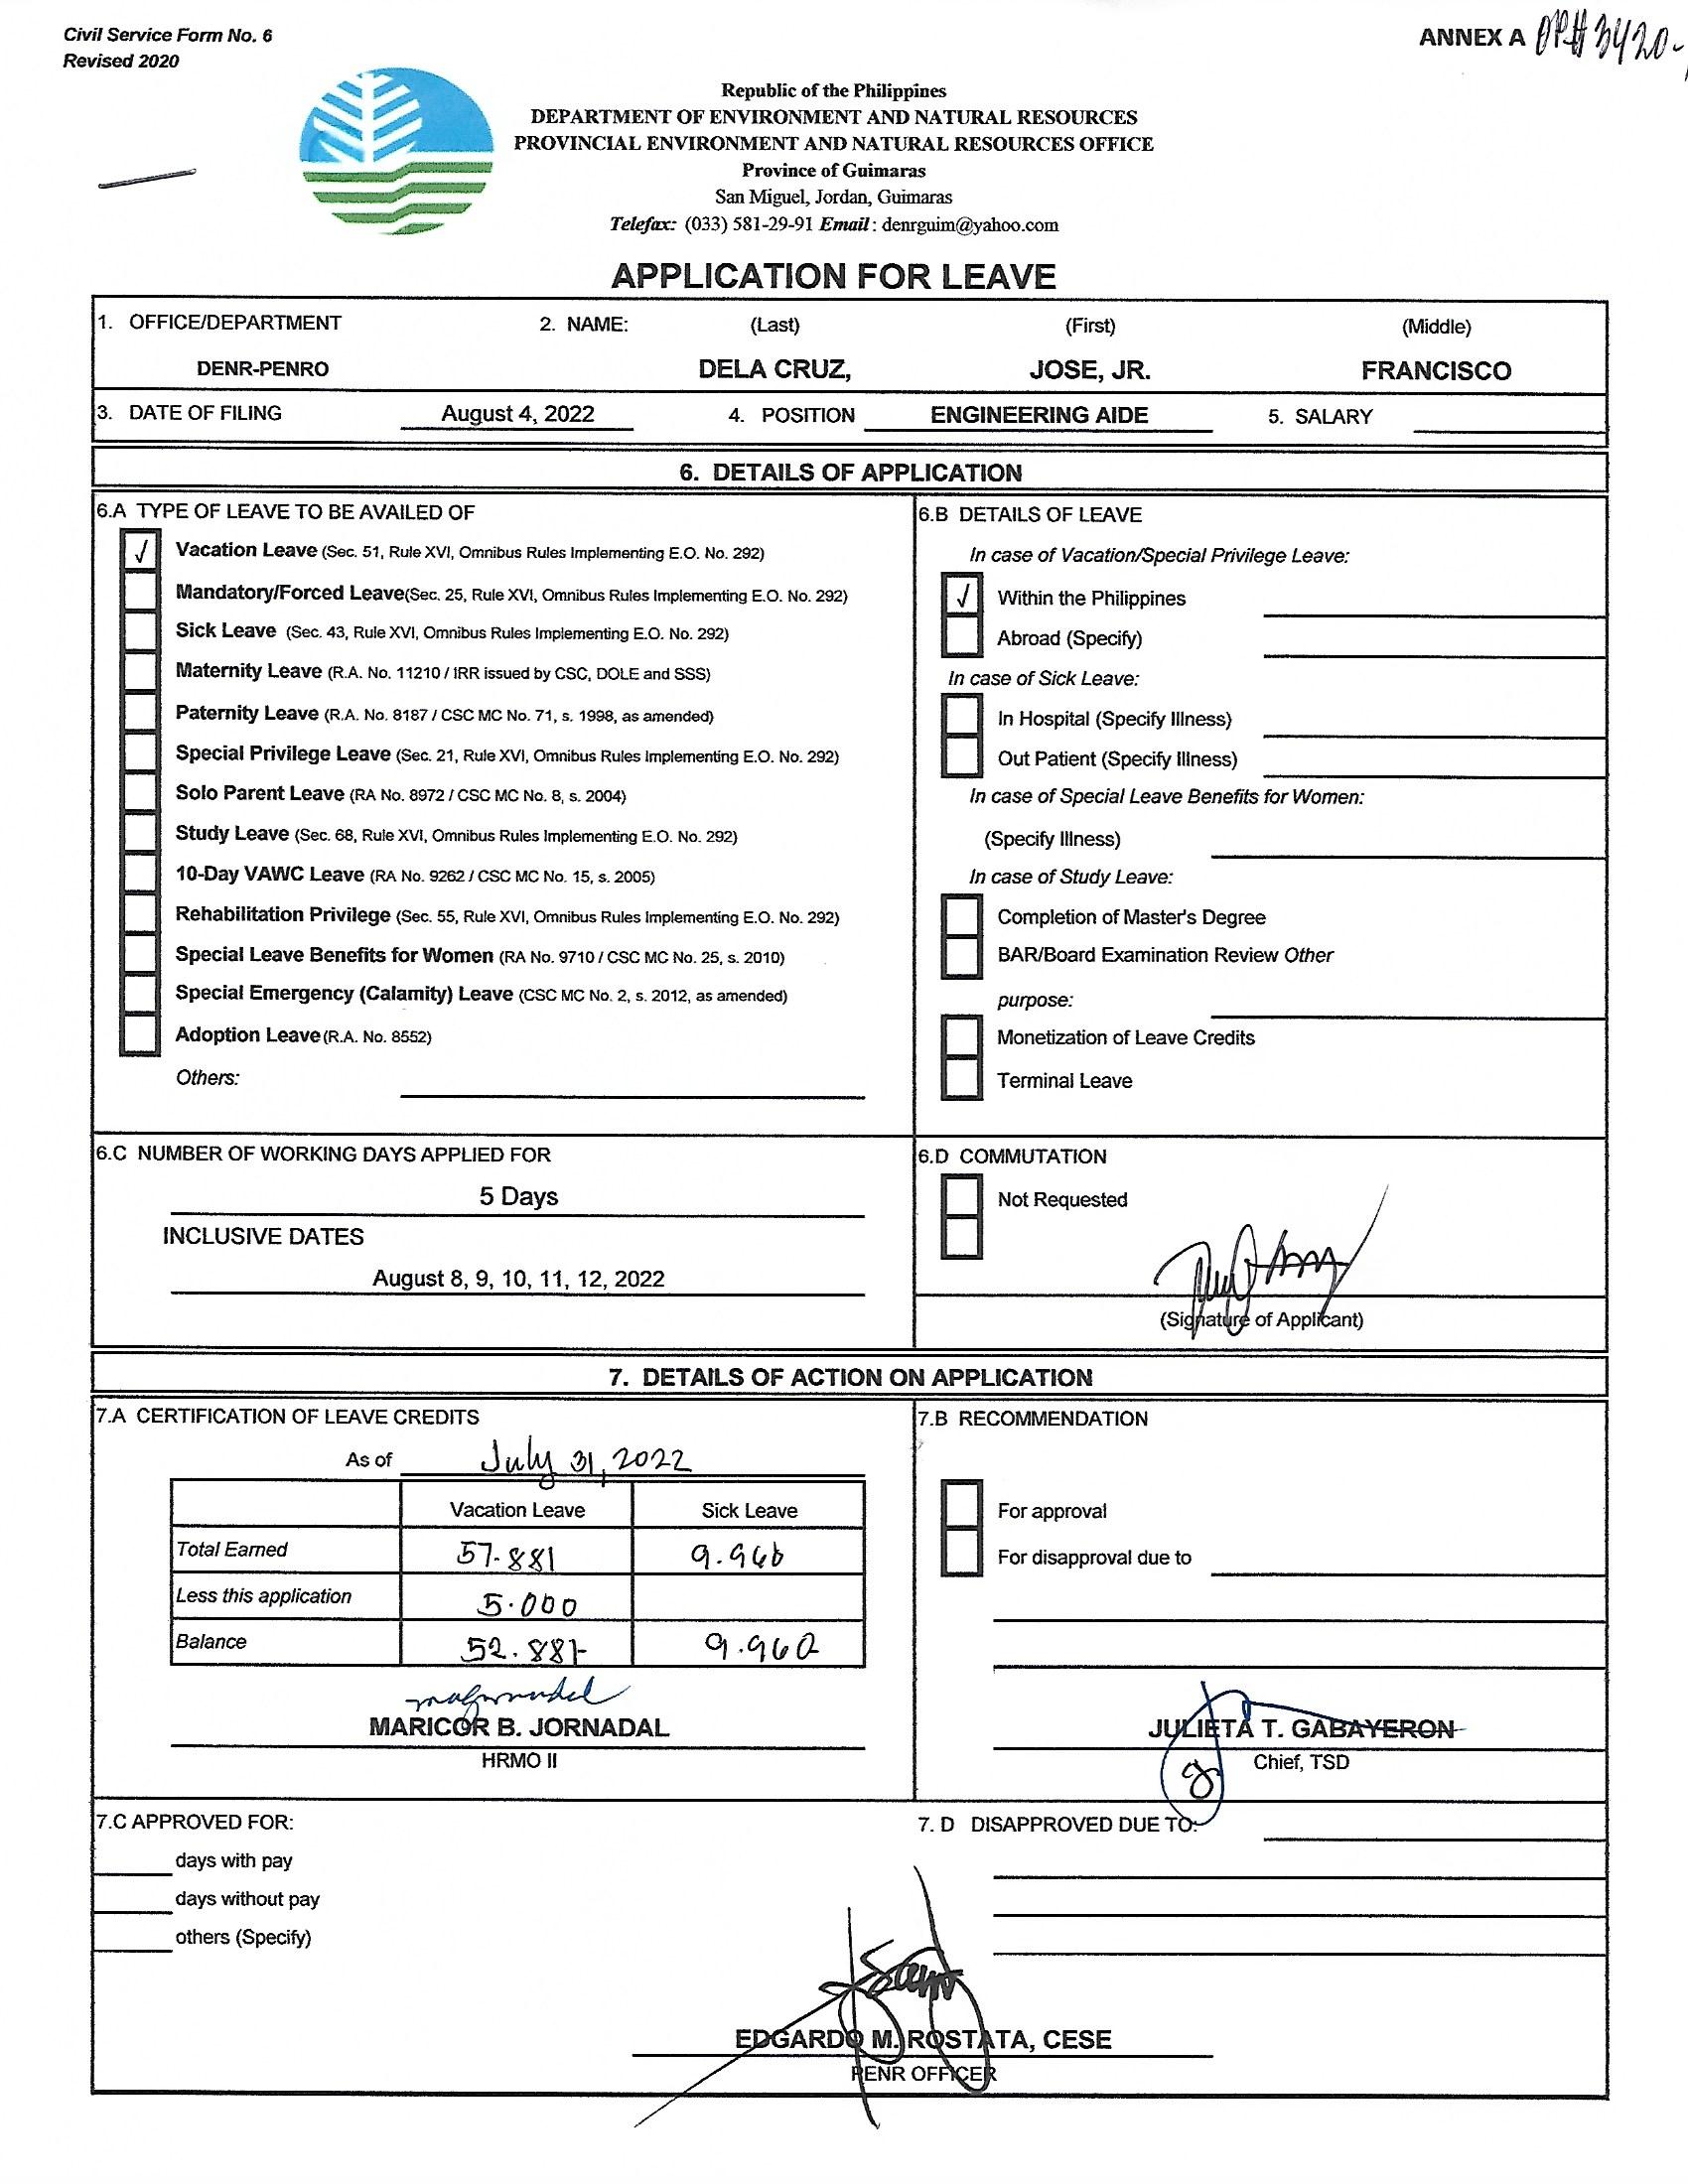 Civil Service Form No. 6
Revised 2020
ANNEX A
Republic of the Philippines
DEPARTMENT OF ENVIRONMENT AND NATURAL RESOURCES
PROVINCIAL ENVIRONMENT AND NATURAL RESOURCES OFFICE
Province of Guimaras
San Miguel, Jordan, Guimaras
Telefax: (033) 581-29-91 Email : denrguim@yahoo.com
APPLICATION FOR LEAVE
1. OFFICE/DEPARTMENT 2. NAME: (Last) (First) (Middle)
DENR-PENRO DELA CRUZ, JOSE, JR. FRANCISCO
3. DATE OF FILING August 4, 2022 4. POSITION ENGINEERING AIDE 5. SALARY
6. DETAILS OF APPLICATION
6.A TYPE OF LEAVE TO BE AVAILED OF
√ Vacation Leave (Sec. 51, Rule XVI, Omnibus Rules Implementing E.O. No. 292)
Mandatory/Forced Leave(Sec. 25, Rule XVI, Omnibus Rules Implementing E.O. No. 292)
Sick Leave (Sec. 43, Rule XVI, Omnibus Rules Implementing E.O. No. 292)
Maternity Leave (R.A. No. 11210 / IRR issued by CSC, DOLE and SSS)
Paternity Leave (R.A. No. 8187 / CSC MC No. 71, s. 1998, as amended)
Special Privilege Leave (Sec. 21, Rule XVI, Omnibus Rules Implementing E.O. No. 292)
Solo Parent Leave (RA No. 8972 / CSC MC No. 8, s. 2004)
Study Leave (Sec. 68, Rule XVI, Omnibus Rules Implementing E.O. No. 292)
10-Day VAWC Leave (RA No. 9262 / CSC MC No. 15, s. 2005)
Rehabilitation Privilege (Sec. 55, Rule XVI, Omnibus Rules Implementing E.O. No. 292)
Special Leave Benefits for Women (RA No. 9710 / CSC MC No. 25, s. 2010)
Special Emergency (Calamity) Leave (CSC MC No. 2, s. 2012, as amended)
Adoption Leave (R.A. No. 8552)
Others:
6.B DETAILS OF LEAVE
In case of Vacation/Special Privilege Leave:
√ Within the Philippines
Abroad (Specify)
In case of Sick Leave:
In Hospital (Specify Illness)
Out Patient (Specify Illness)
In case of Special Leave Benefits for Women:
(Specify Illness)
In case of Study Leave:
Completion of Master's Degree
BAR/Board Examination Review Other
purpose:
Monetization of Leave Credits
Terminal Leave
6.C NUMBER OF WORKING DAYS APPLIED FOR
5 Days
INCLUSIVE DATES
August 8, 9, 10, 11, 12, 2022
6.D COMMUTATION
Not Requested
(Signature of Applicant)
7. DETAILS OF ACTION ON APPLICATION
7.A CERTIFICATION OF LEAVE CREDITS
As of July 31, 2022
Vacation Leave Sick Leave
Total Earned 57.881 9.960
Less this application 5.000
Balance 52.881 9.960
MARICOR B. JORNADAL
HRMO II
7.B RECOMMENDATION
For approval
For disapproval due to
JULIETA T. GABAYERON
Chief, TSD
7.C APPROVED FOR:
days with pay
days without pay
others (Specify)
7. D DISAPPROVED DUE TO:
EDGARDO M. ROSTATA, CESE
PENR OFFICER